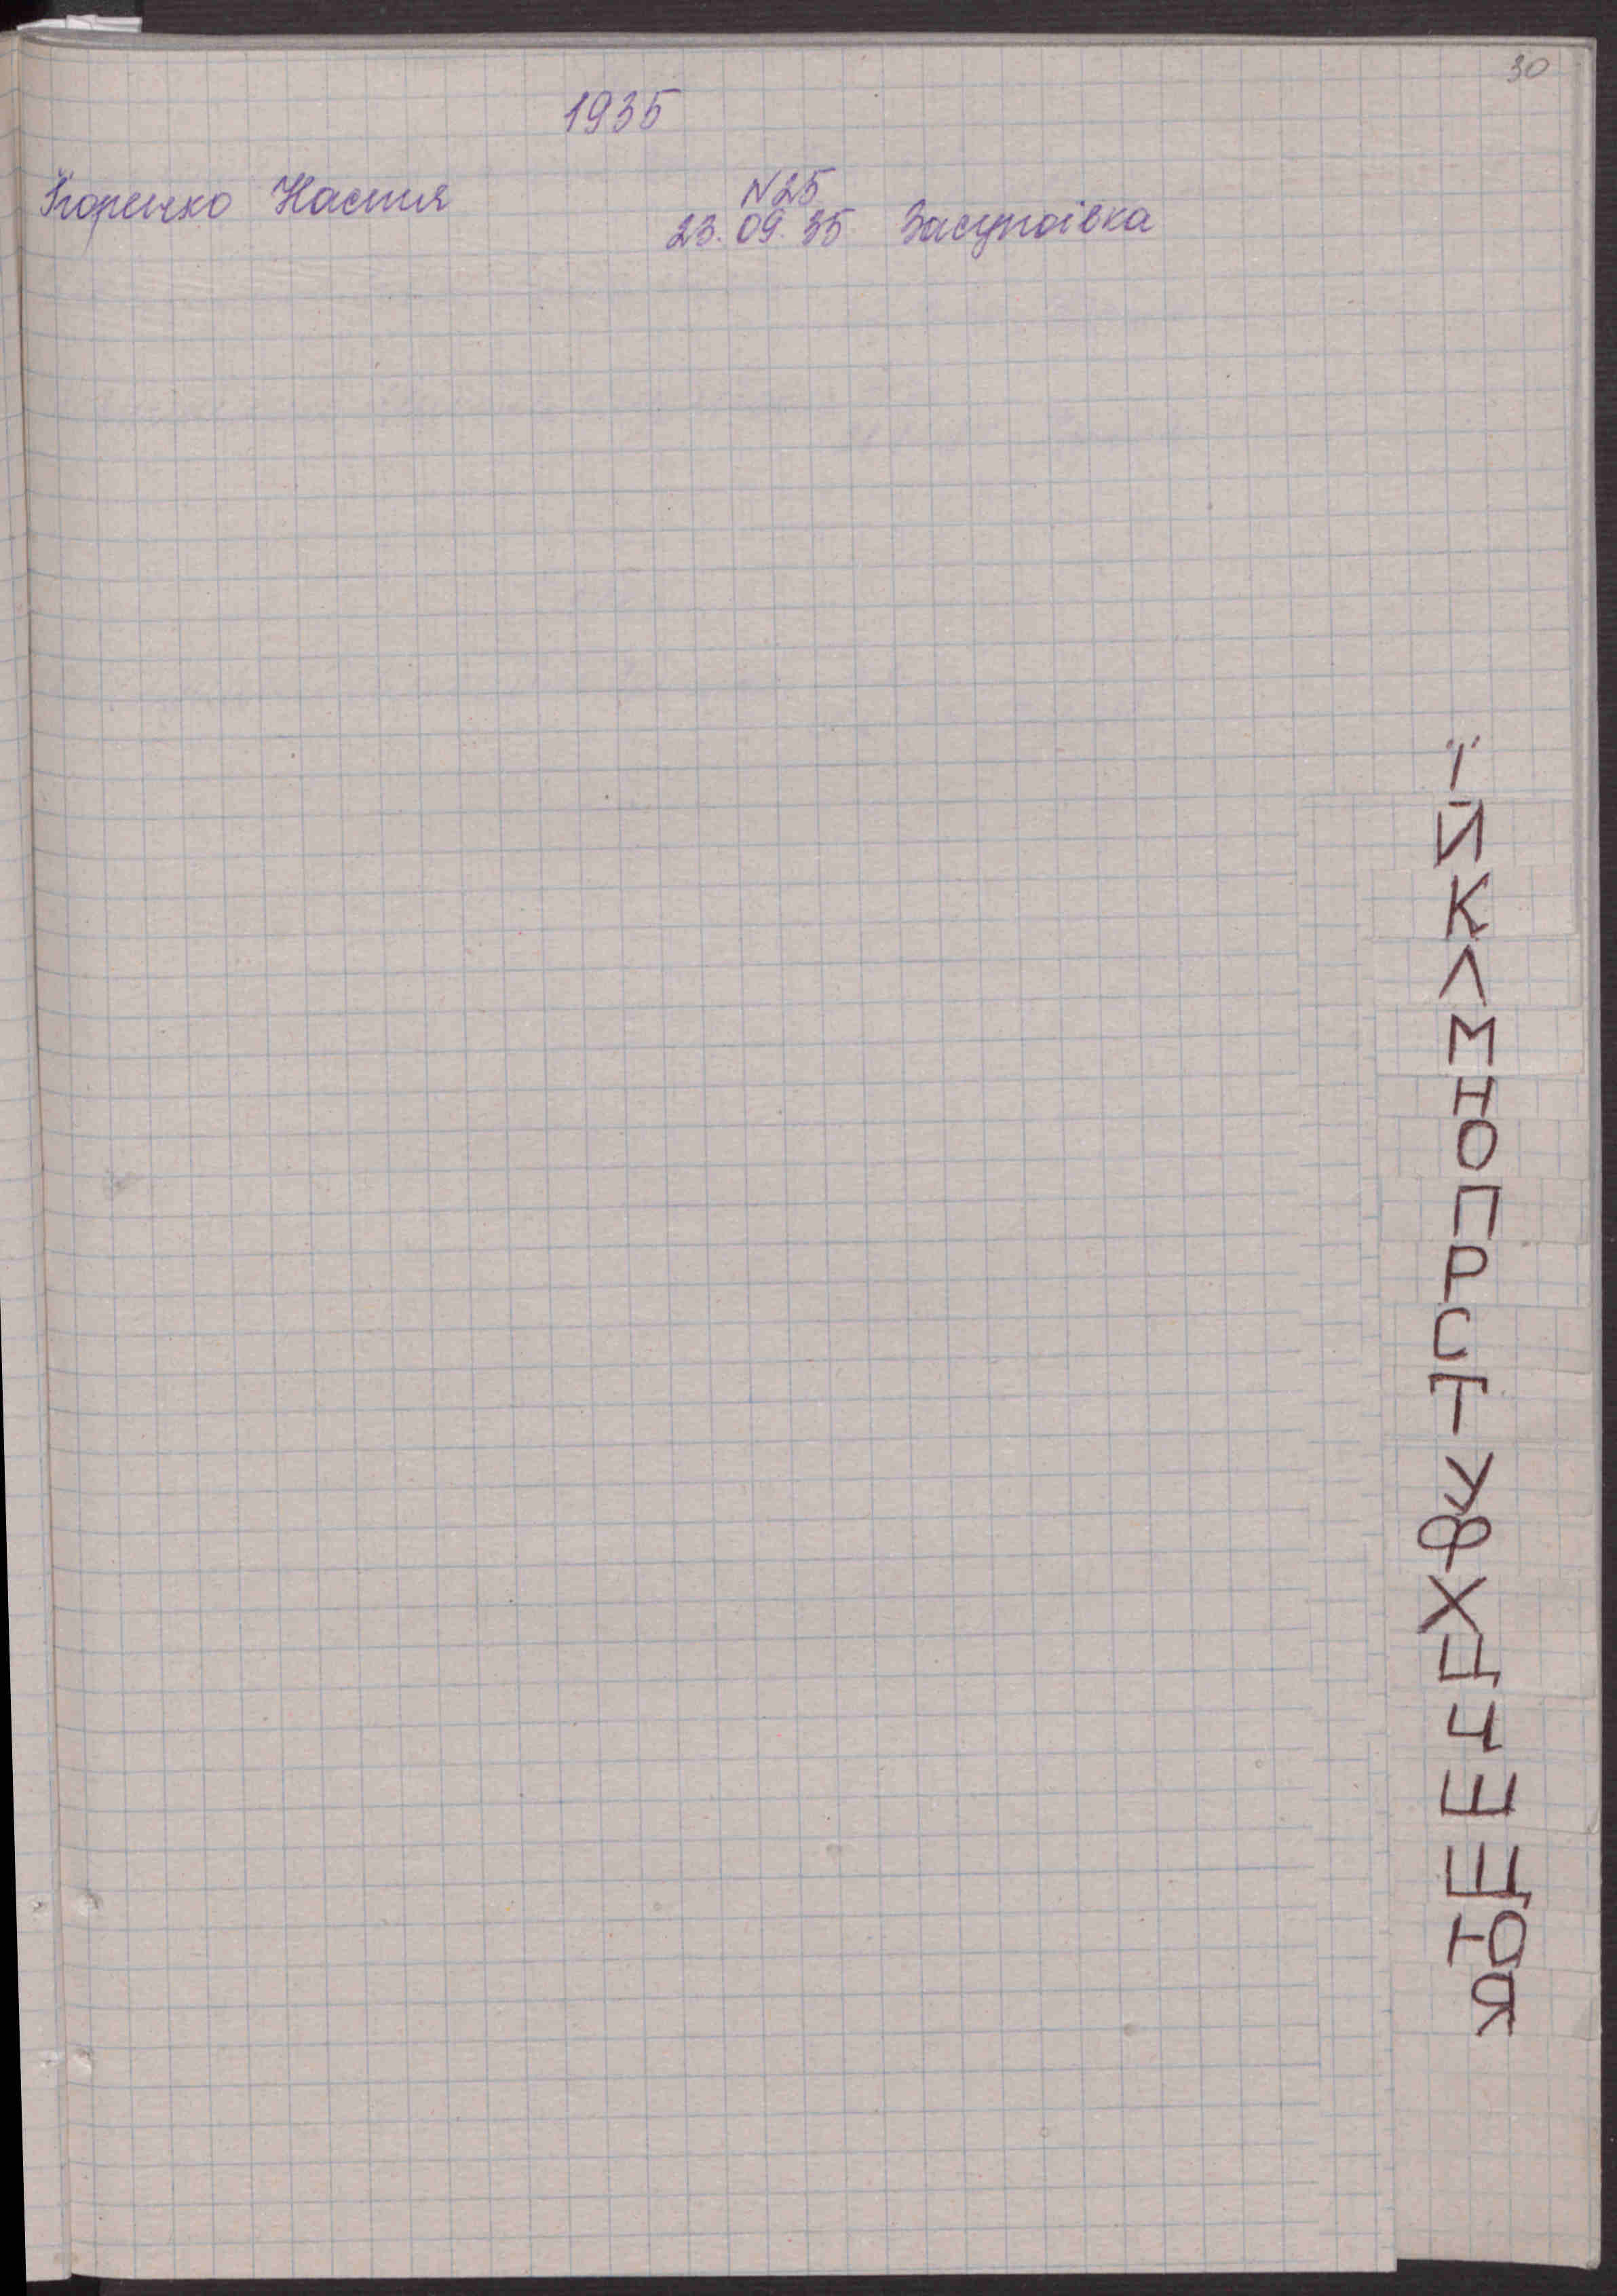 30
1935
Їгоренко Настя
N25
23.09.35 Засупоівка
Ї
Й
К
Л
М
Н
О
П
Р
С
Т
У
Ф
Х
Ц
Ч
Ш
Щ
Ю
Я